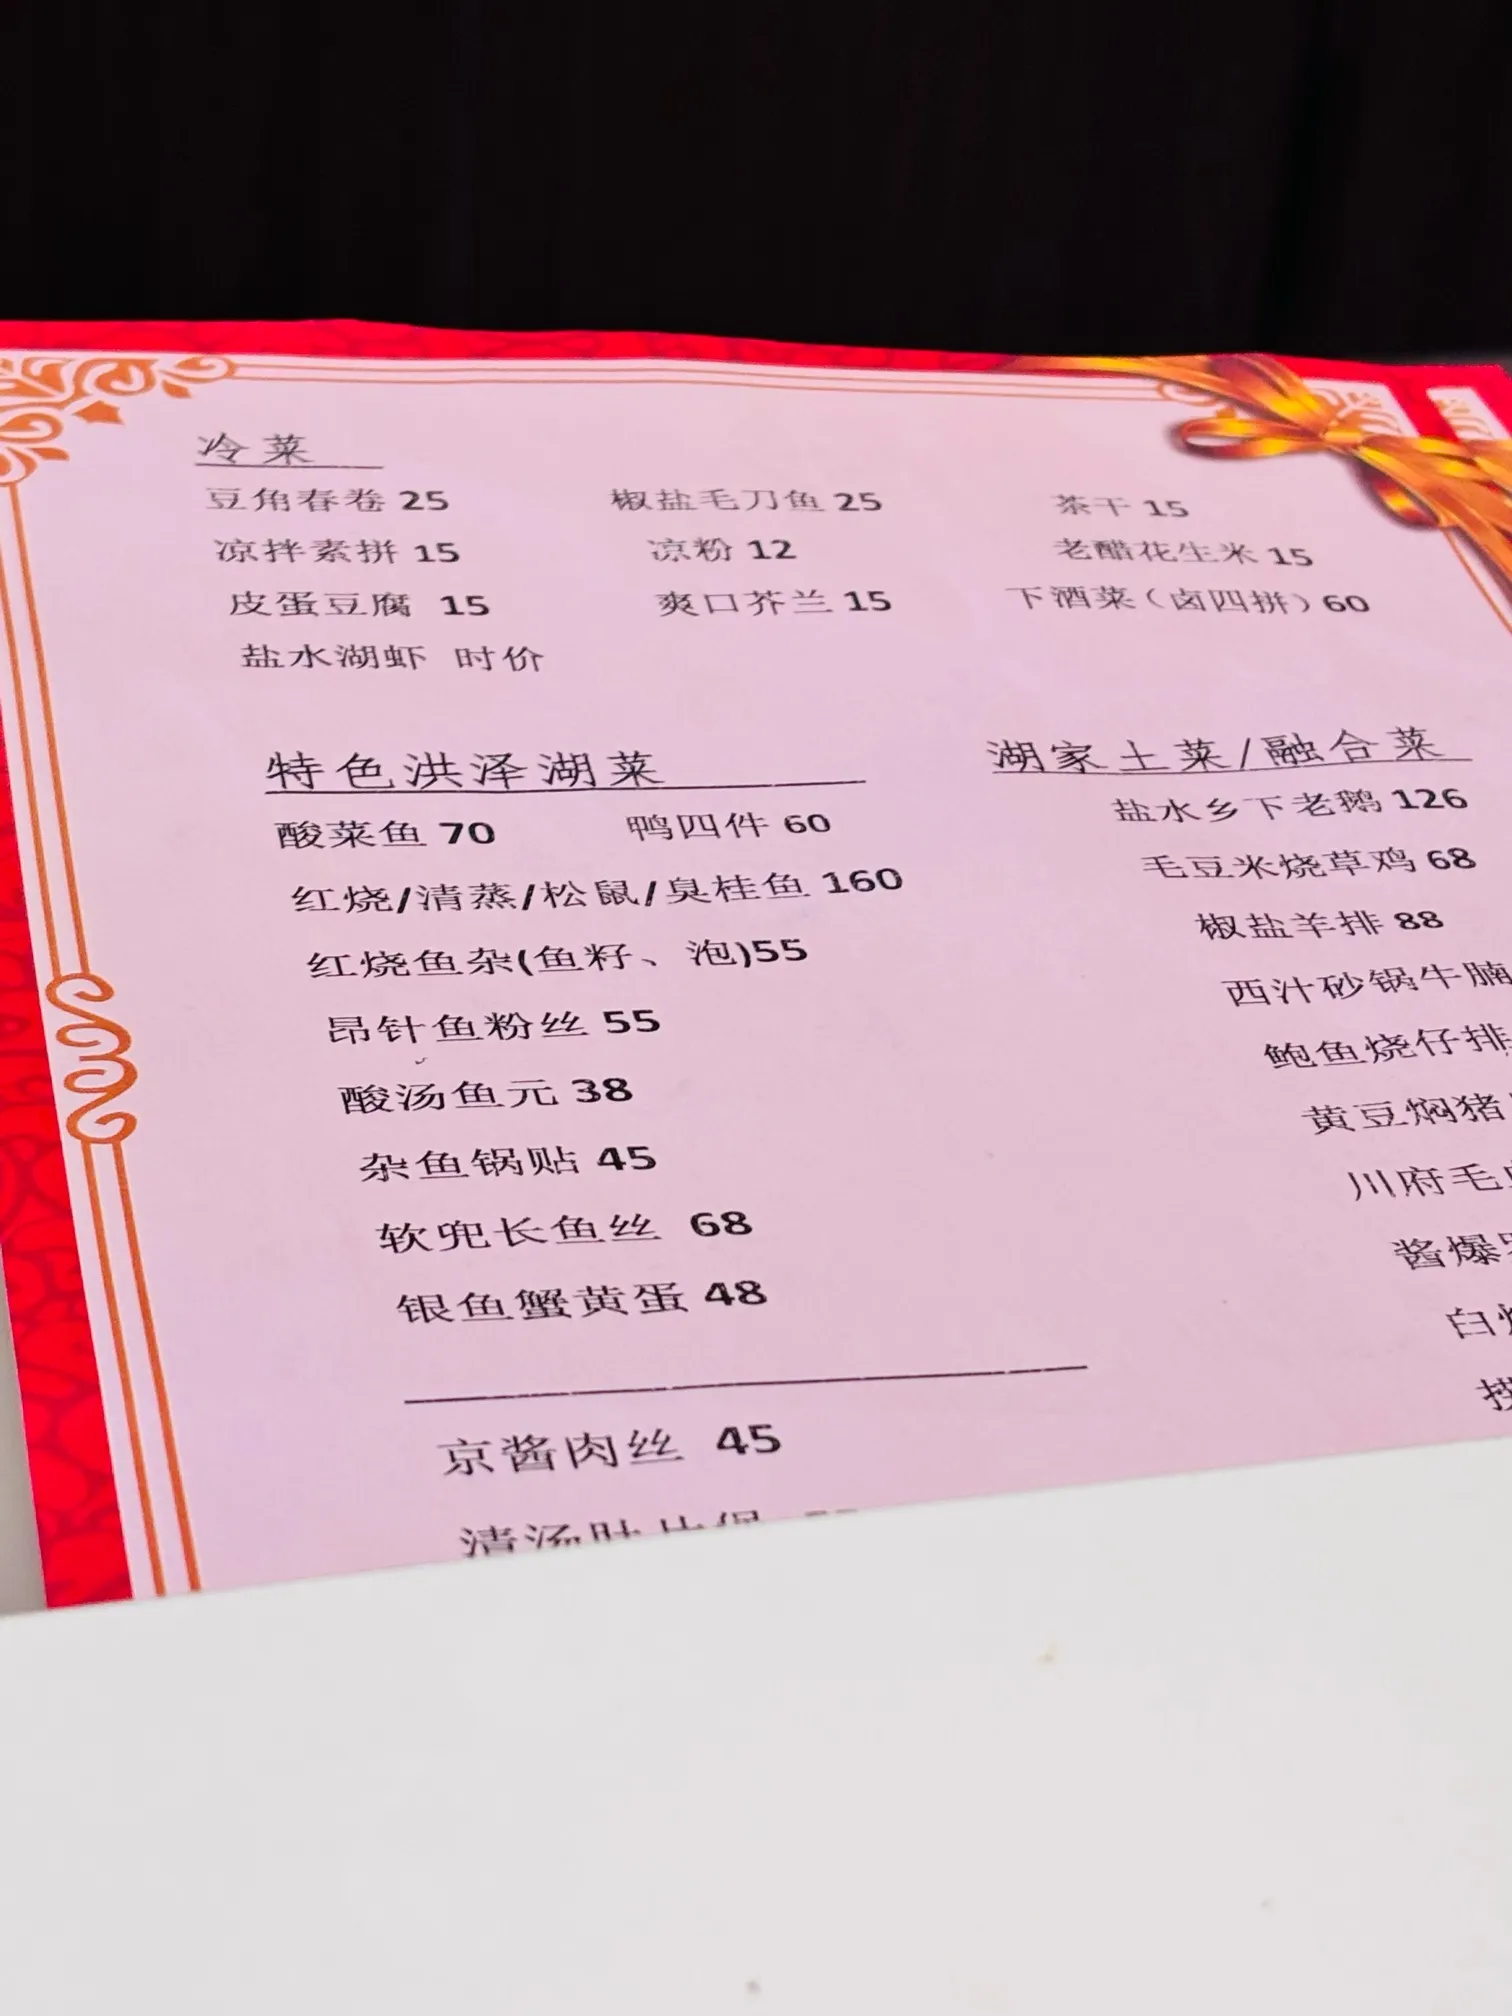 冷菜
豆角春卷 25 椒盐毛刀鱼 25 茶干 15
凉拌素拼 15 凉粉 12 老醋花生米 15
皮蛋豆腐 15 爽口芥兰 15 下酒菜（卤四拼）60
盐水湖虾 时价
特色洪泽湖菜
酸菜鱼 70 鸭四件 60
红烧/清蒸/松鼠/臭桂鱼 160
红烧鱼杂(鱼籽、泡)55
昂针鱼粉丝 55
酸汤鱼元 38
杂鱼锅贴 45
软兜长鱼丝 68
银鱼蟹黄蛋 48
京酱肉丝 45
清汤
湖家土菜/融合菜
盐水乡下老鹅 126
毛豆米烧草鸡 68
椒盐羊排 88
西汁砂锅牛腩
鲍鱼烧仔排
黄豆焖猪
川府毛
酱爆
白